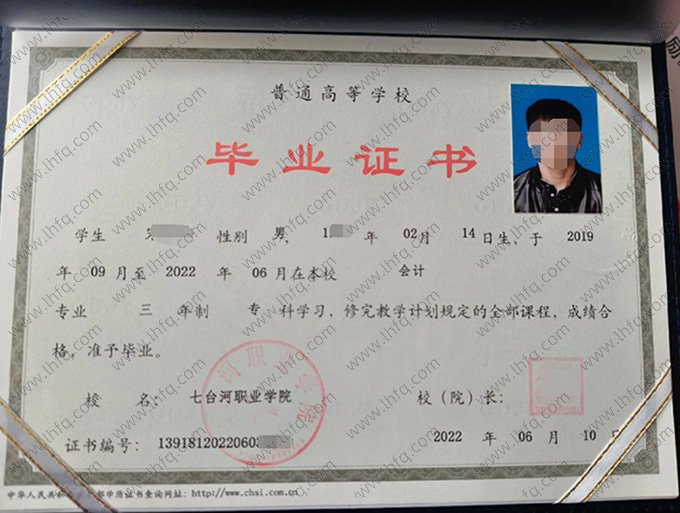 普通高等学校
毕业证书
学生 性别 男、1 年 02月 14日生、于 2019
年 09 月至 2022 年 06 月在本校 会计
专业 三 年制 专 科学习，修完教学计划规定的全部课程，成绩合
格，准予毕业。
校 名： 七台河职业学院 校（院）长：
证书编号： 13918120220603 2022 年 06 月 10 日
查询网址：http://www.chsi.com.cn
www.lhfq.com